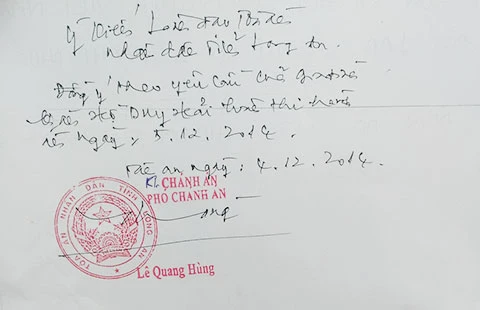 Ý kiến lãnh đạo Tòa án
nhân dân tỉnh Long An.
Đồng ý theo yêu cầu của
Hồ Duy Hải thi hành
án ngày: 5.12.2014.
an, ngày: 4.12.2014.
KT. CHÁNH ÁN
PHÓ CHÁNH ÁN
TÒA ÁN NHÂN DÂN TỈNH LONG AN
Lê Quang Hùng